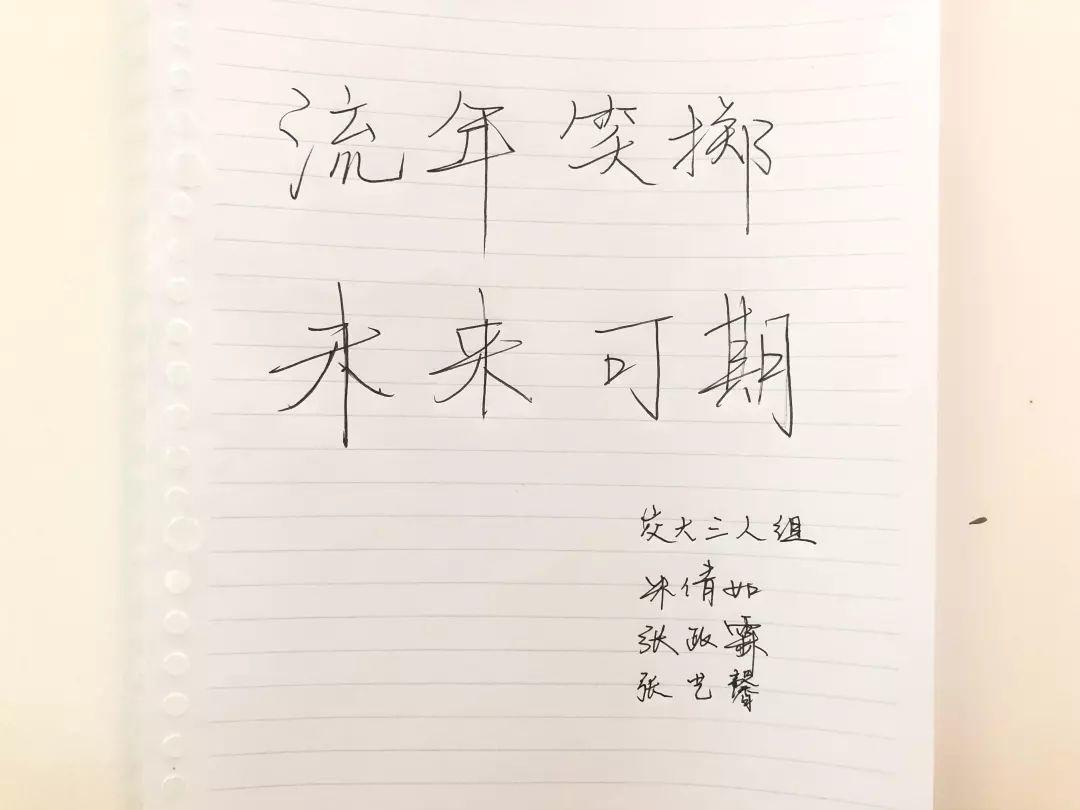 流年笑掷
未来可期
交大三人组
朱倩如
张政霖
张艺馨